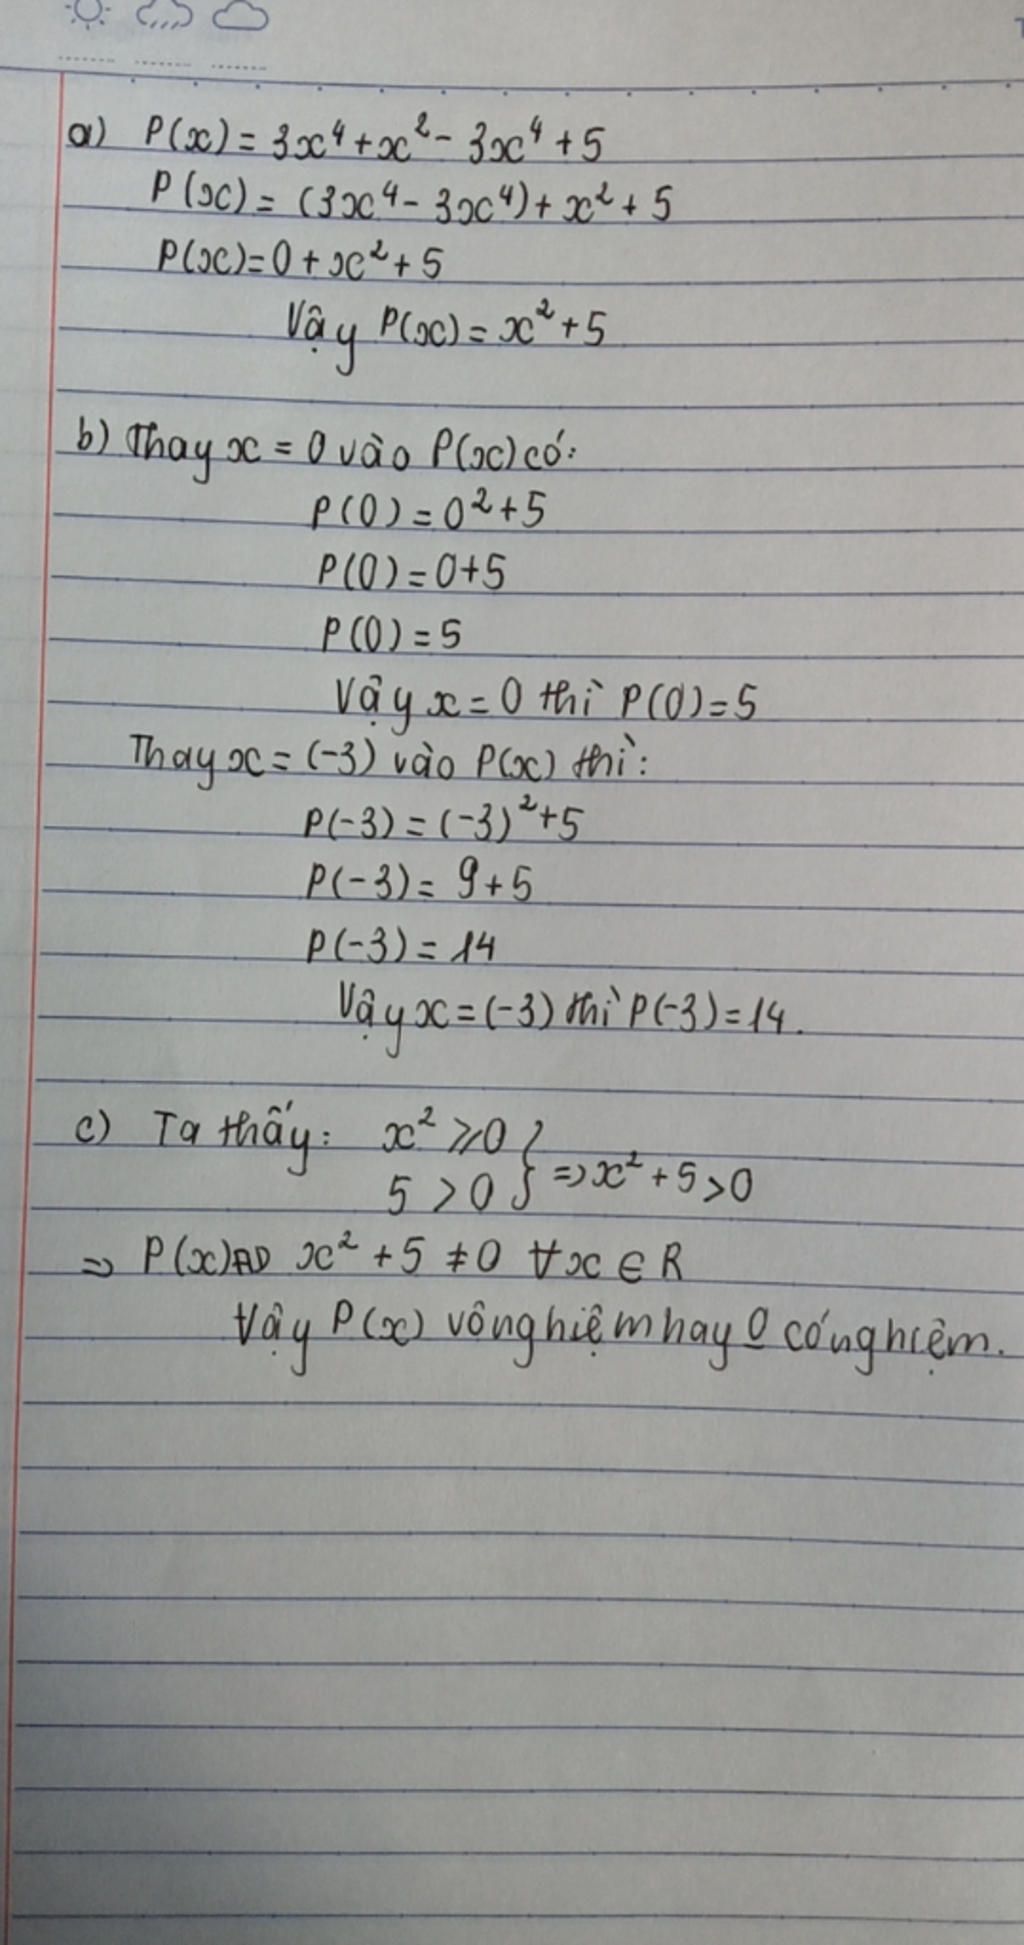 a) P(x) = 3x⁴ + x² - 3x⁴ + 5
P(x) = (3x⁴ - 3x⁴) + x² + 5
P(x) = 0 + x² + 5
Vậy P(x) = x² + 5
b) Thay x = 0 vào P(x) có:
P(0) = 0² + 5
P(0) = 0 + 5
P(0) = 5
Vậy x = 0 thì P(0) = 5
Thay x = (-3) vào P(x) thì:
P(-3) = (-3)² + 5
P(-3) = 9 + 5
P(-3) = 14
Vậy x = (-3) thì P(-3) = 14.
c) Ta thấy: x² ⩾ 0
5 > 0 } => x² + 5 > 0
=> P(x) x² + 5 ≠ 0 ∀x ∈ R
Vậy P(x) vô nghiệm hay 0 có nghiệm.